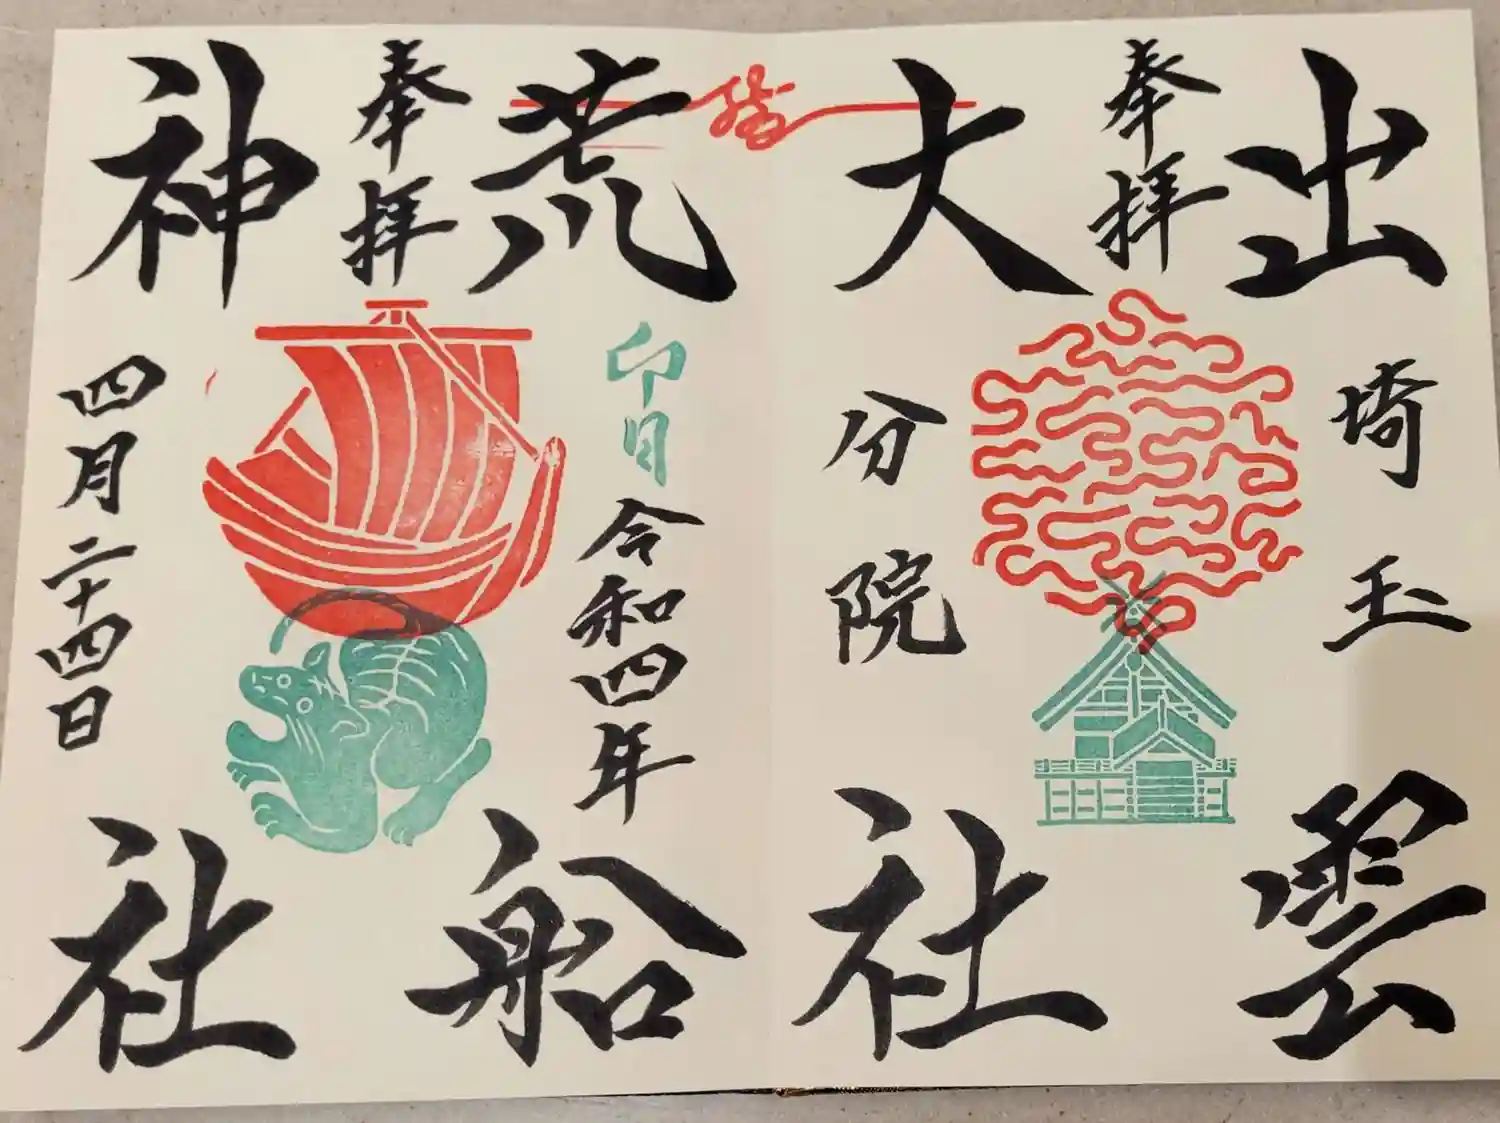 出雲
奉拝
埼玉
大社
分院
荒船
奉拝
卯日
令和四年
神社
四月二十四日